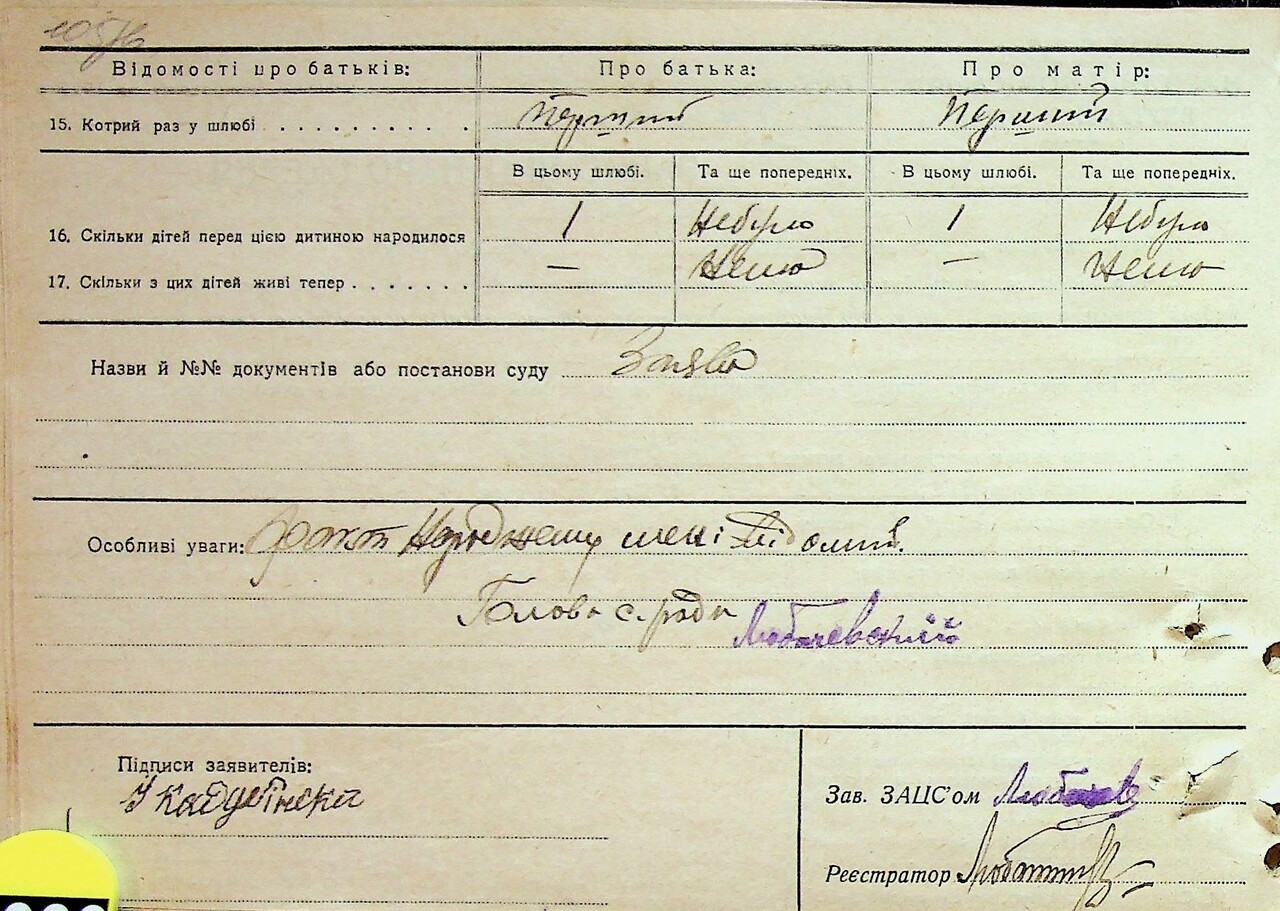 Відомості про батьків: Про батька: Про матір:
15. Котрий раз у шлюбі Перший Перший
В цьому шлюбі. Та ще попередніх. В цьому шлюбі. Та ще попередніх.
16. Скільки дітей перед цією дитиною народилося 1 Небуло 1 Небуло
17. Скільки з цих дітей живі тепер — Немає — Немає
Назви й №№ документів або постанови суду Заява
Особливі уваги: Факт Народженню мені відомий.
Голова с. ради Любачевський
Підписи заявителів:
Зав. ЗАЦС'ом
Реєстратор